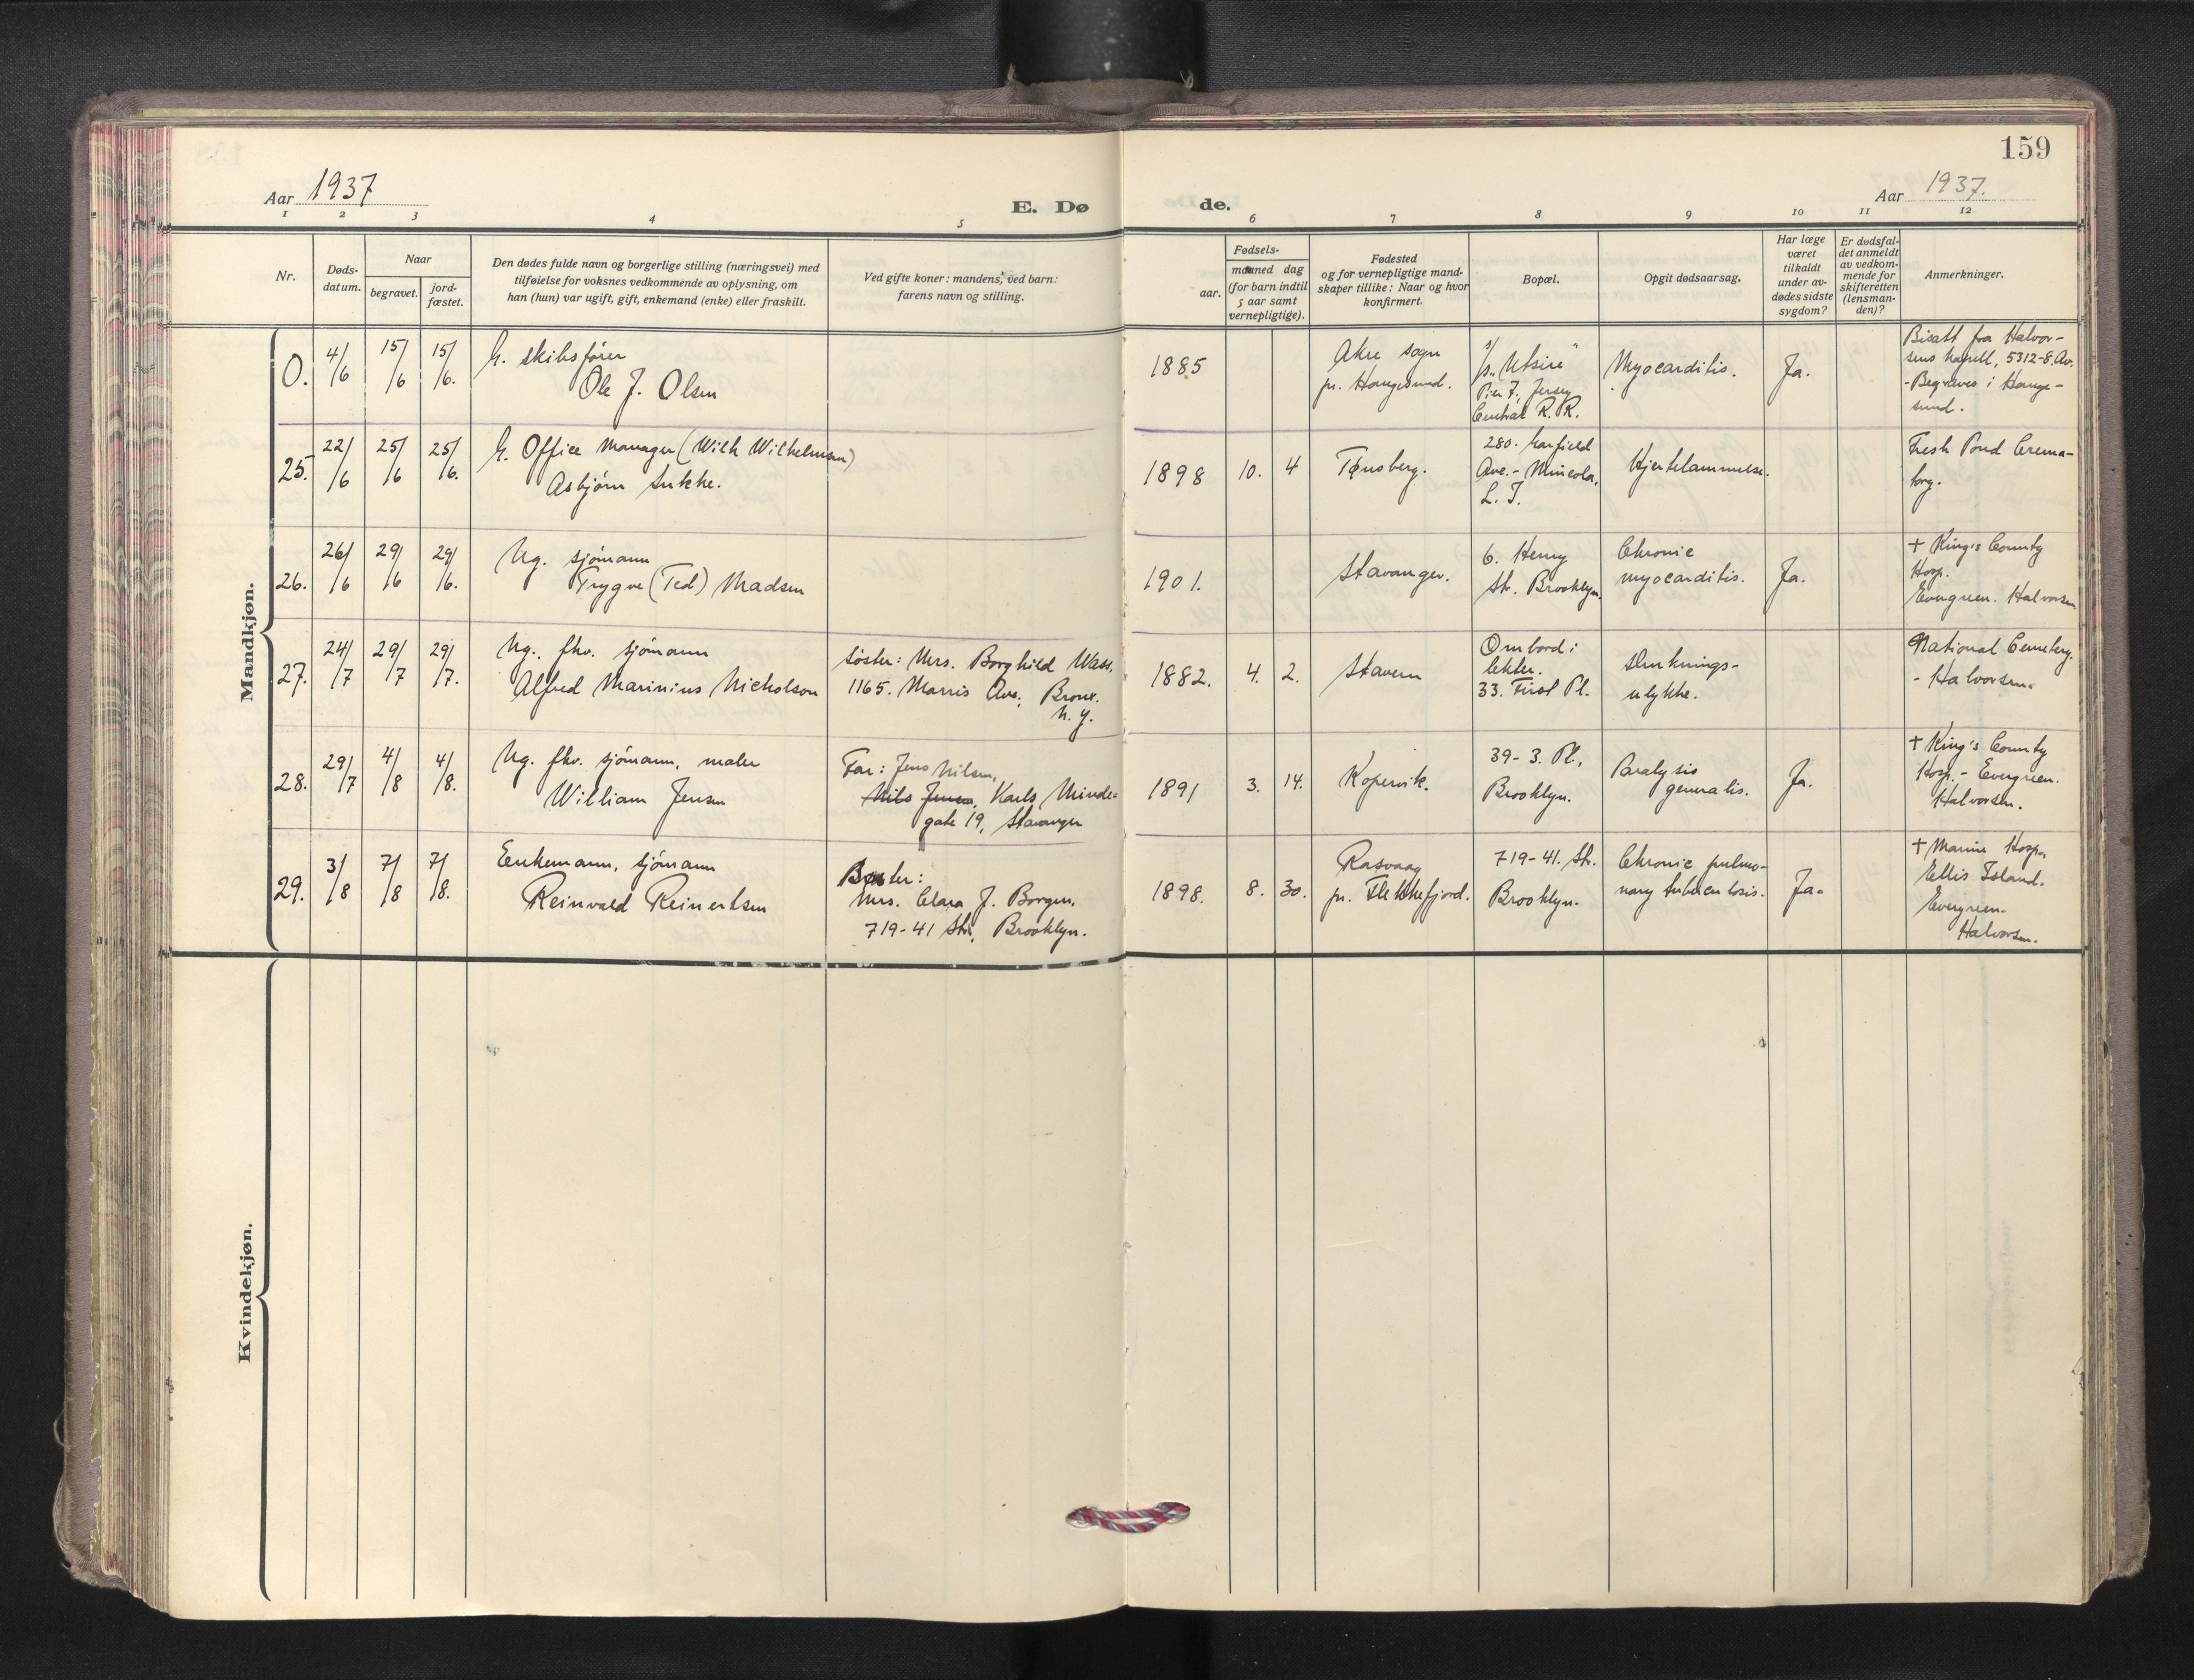 159
Aar 1937
E. Dø
de.
Aar 1937.
1 2 3 4 5 6 7 8 9 10 11 12
Nr.
Døds-
datum.
Naar
begravet.
jord-
fæstet.
Den dødes fulde navn og borgerlige stilling (næringsvei) med
tilføielse for voksnes vedkommende av oplysning, om
han (hun) var ugift, gift, enkemand (enke) eller fraskilt.
Ved gifte koner: mandens, ved barn:
farens navn og stilling.
Fødsels-
aar.
maaned dag
(for barn indtil
5 aar samt
vernepligtige).
Fødested
og for vernepligtige mand-
skaper tillike: Naar og hvor
konfirmert.
Bopæl.
Opgit dødsaarsag.
Har læge
været
tilkaldt
under av-
dødes sidste
sygdom?
Er dødsfal-
det anmeldt
av vedkom-
mende for
skifteretten
(lensman-
den)?
Anmerkninger.
Mandkjøn.
O. 4/6 15/6 15/6.
G. skibsfører
Ole J. Olsen
1885
Akre sogn
pr. Haugesund.
s/s "Utsire"
Pier 7, Jersey
Central R. R.
Myocarditis.
Ja.
Bisatt fra Halvor-
sens kapell, 5312-8. Av.
- Begraves i Hauge-
sund.
25. 22/6 25/6 25/6.
G. Office Manager (Wilh Wilhelmsen)
Asbjørn
1898 10. 4
Tønsberg.
280. Garfield
Ave. - Mineola,
L. I.
Hjertelammelse.
Fresh Pond Crema-
tory.
26. 26/6 29/6 29/6.
Ug. sjömann
Trygve (Ted) Madsen
1901.
Stavanger.
6. Henry
St. Brooklyn.
Chronic
myocarditis.
Ja.
+ King's County
Hosp.
Evergreen. Halvorsen
27. 24/7 29/7 29/7.
Ug. fhv. sjömann
Alfred Marinius Nicholson
Søster: Mrs. Borghild Wass,
1165. Morris Ave., Bronx.
N. Y.
1882. 4. 2.
Stavern
Ombord i
lekter.
33. First Pl.
Druknings-
ulykke.
National Cemetery.
- Halvorsen.
28. 29/7 4/8 4/8.
Ug. fhv. sjömann, maler
William Jensen
Far: Jens Nilsen,
Nils Jensen, Karls Minde-
gate 19, Stavanger
1891 3. 14.
Kopervik.
39 - 3. Pl.,
Brooklyn.
Paralysis
generalis.
Ja.
+ King's County
Hosp. - Evergreen.
Halvorsen.
29. 3/8 7/8 7/8.
Enkemann, sjömann
Reinvald Reinertsen
Mrs. Clara J. Borgen,
719-41 Str., Brooklyn.
1898. 8. 30.
Rasvaag
pr. Flekkefjord.
719-41. Str.
Brooklyn.
Chronic pulmo-
nary tuberculosis.
Ja.
+ Marine Hosp.,
Ellis Island.
Evergreen.
Halvorsen.
Kvindekjøn.